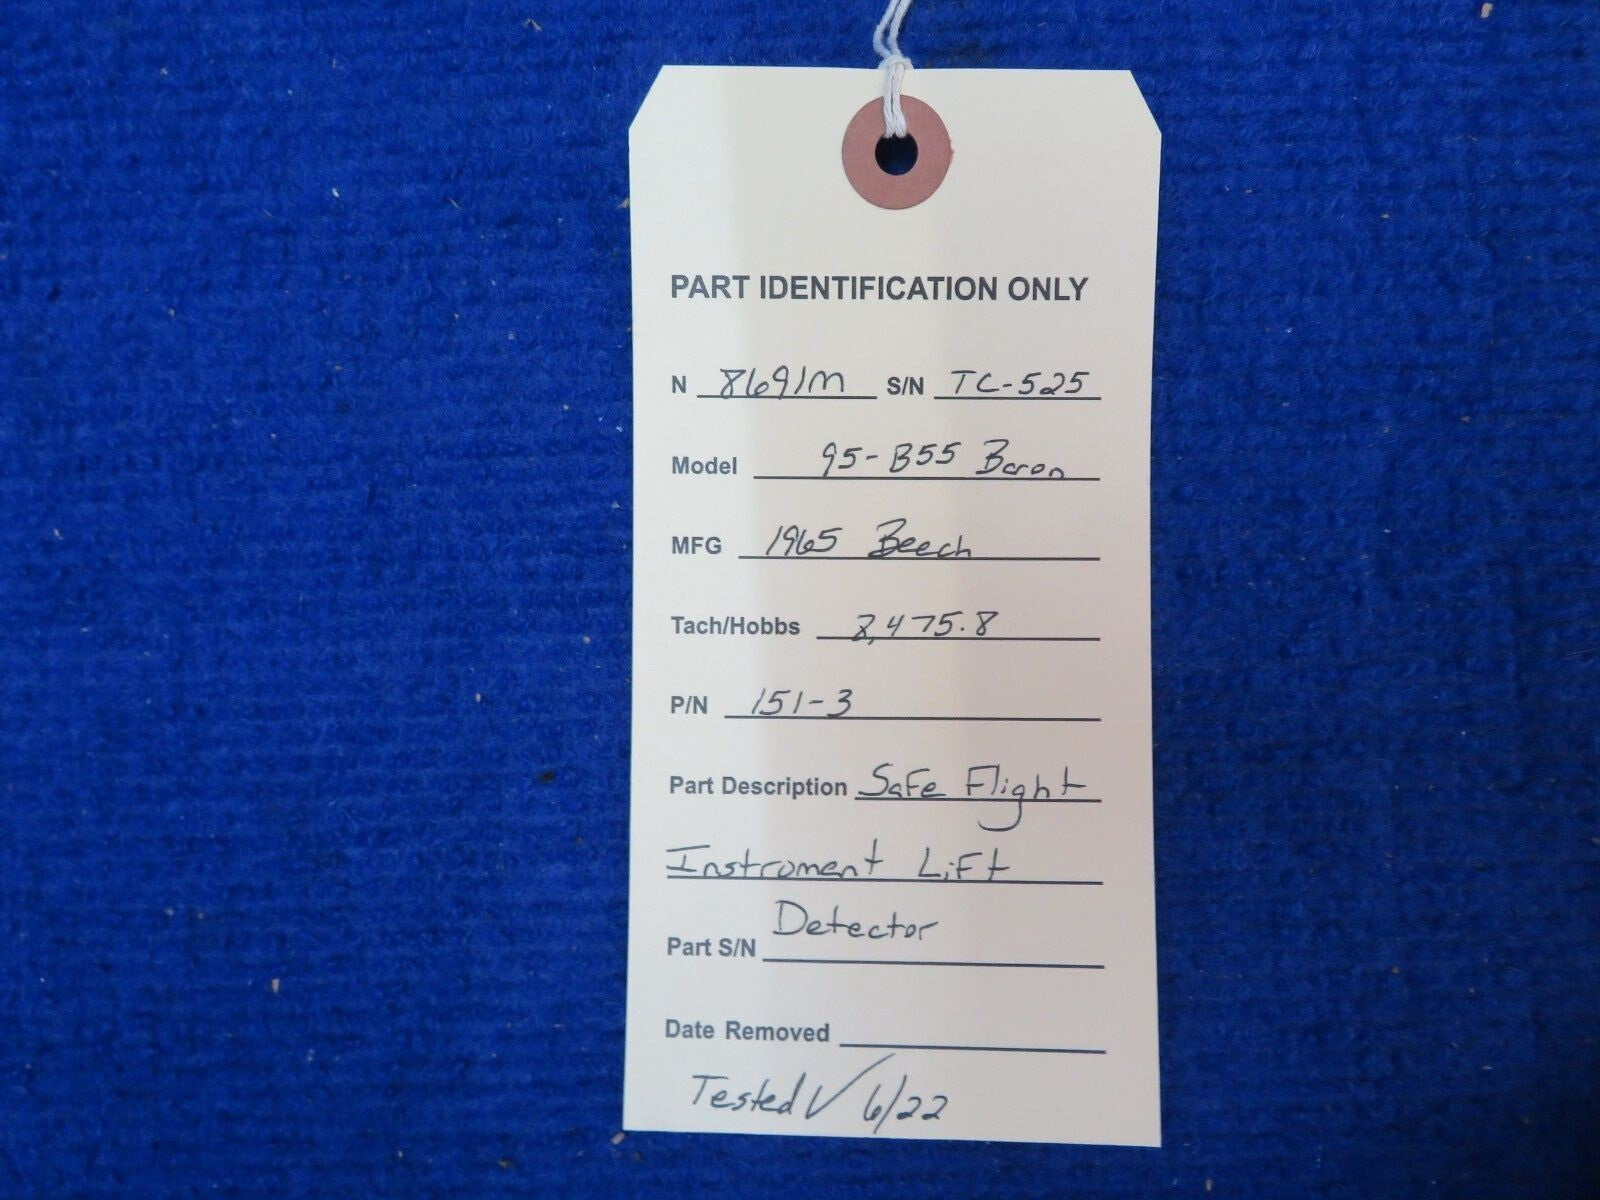 PART IDENTIFICATION ONLY
N 8691M S/N TC-525
Model 95-B55 Baron
MFG 1965 Beech
Tach/Hobbs 8,475.8
P/N 151-3
Part Description Safe Flight
Instrument Lift
Detector
Part S/N
Date Removed
Tested ✓ 6/22